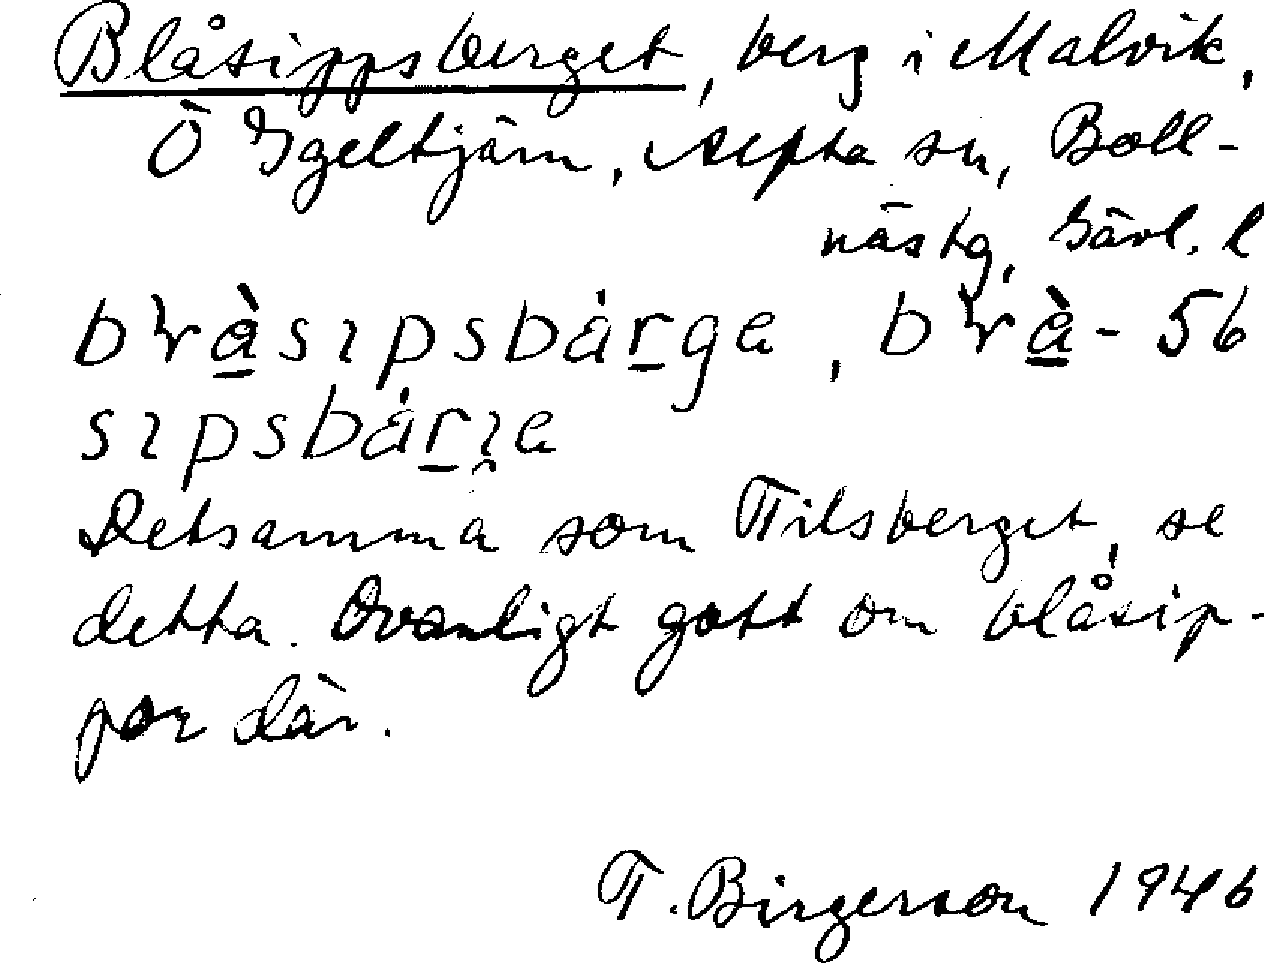 Blåsippsberget, berg i Malvik,
Ö Igeltjärn, Alfta sn, Boll-
nästg, Gävl. l
sɩpsbár̲
Detsamma som Tilsberget, se
detta. Ovanligt gott om blåsip-
por där.
T. Birgerson 1946